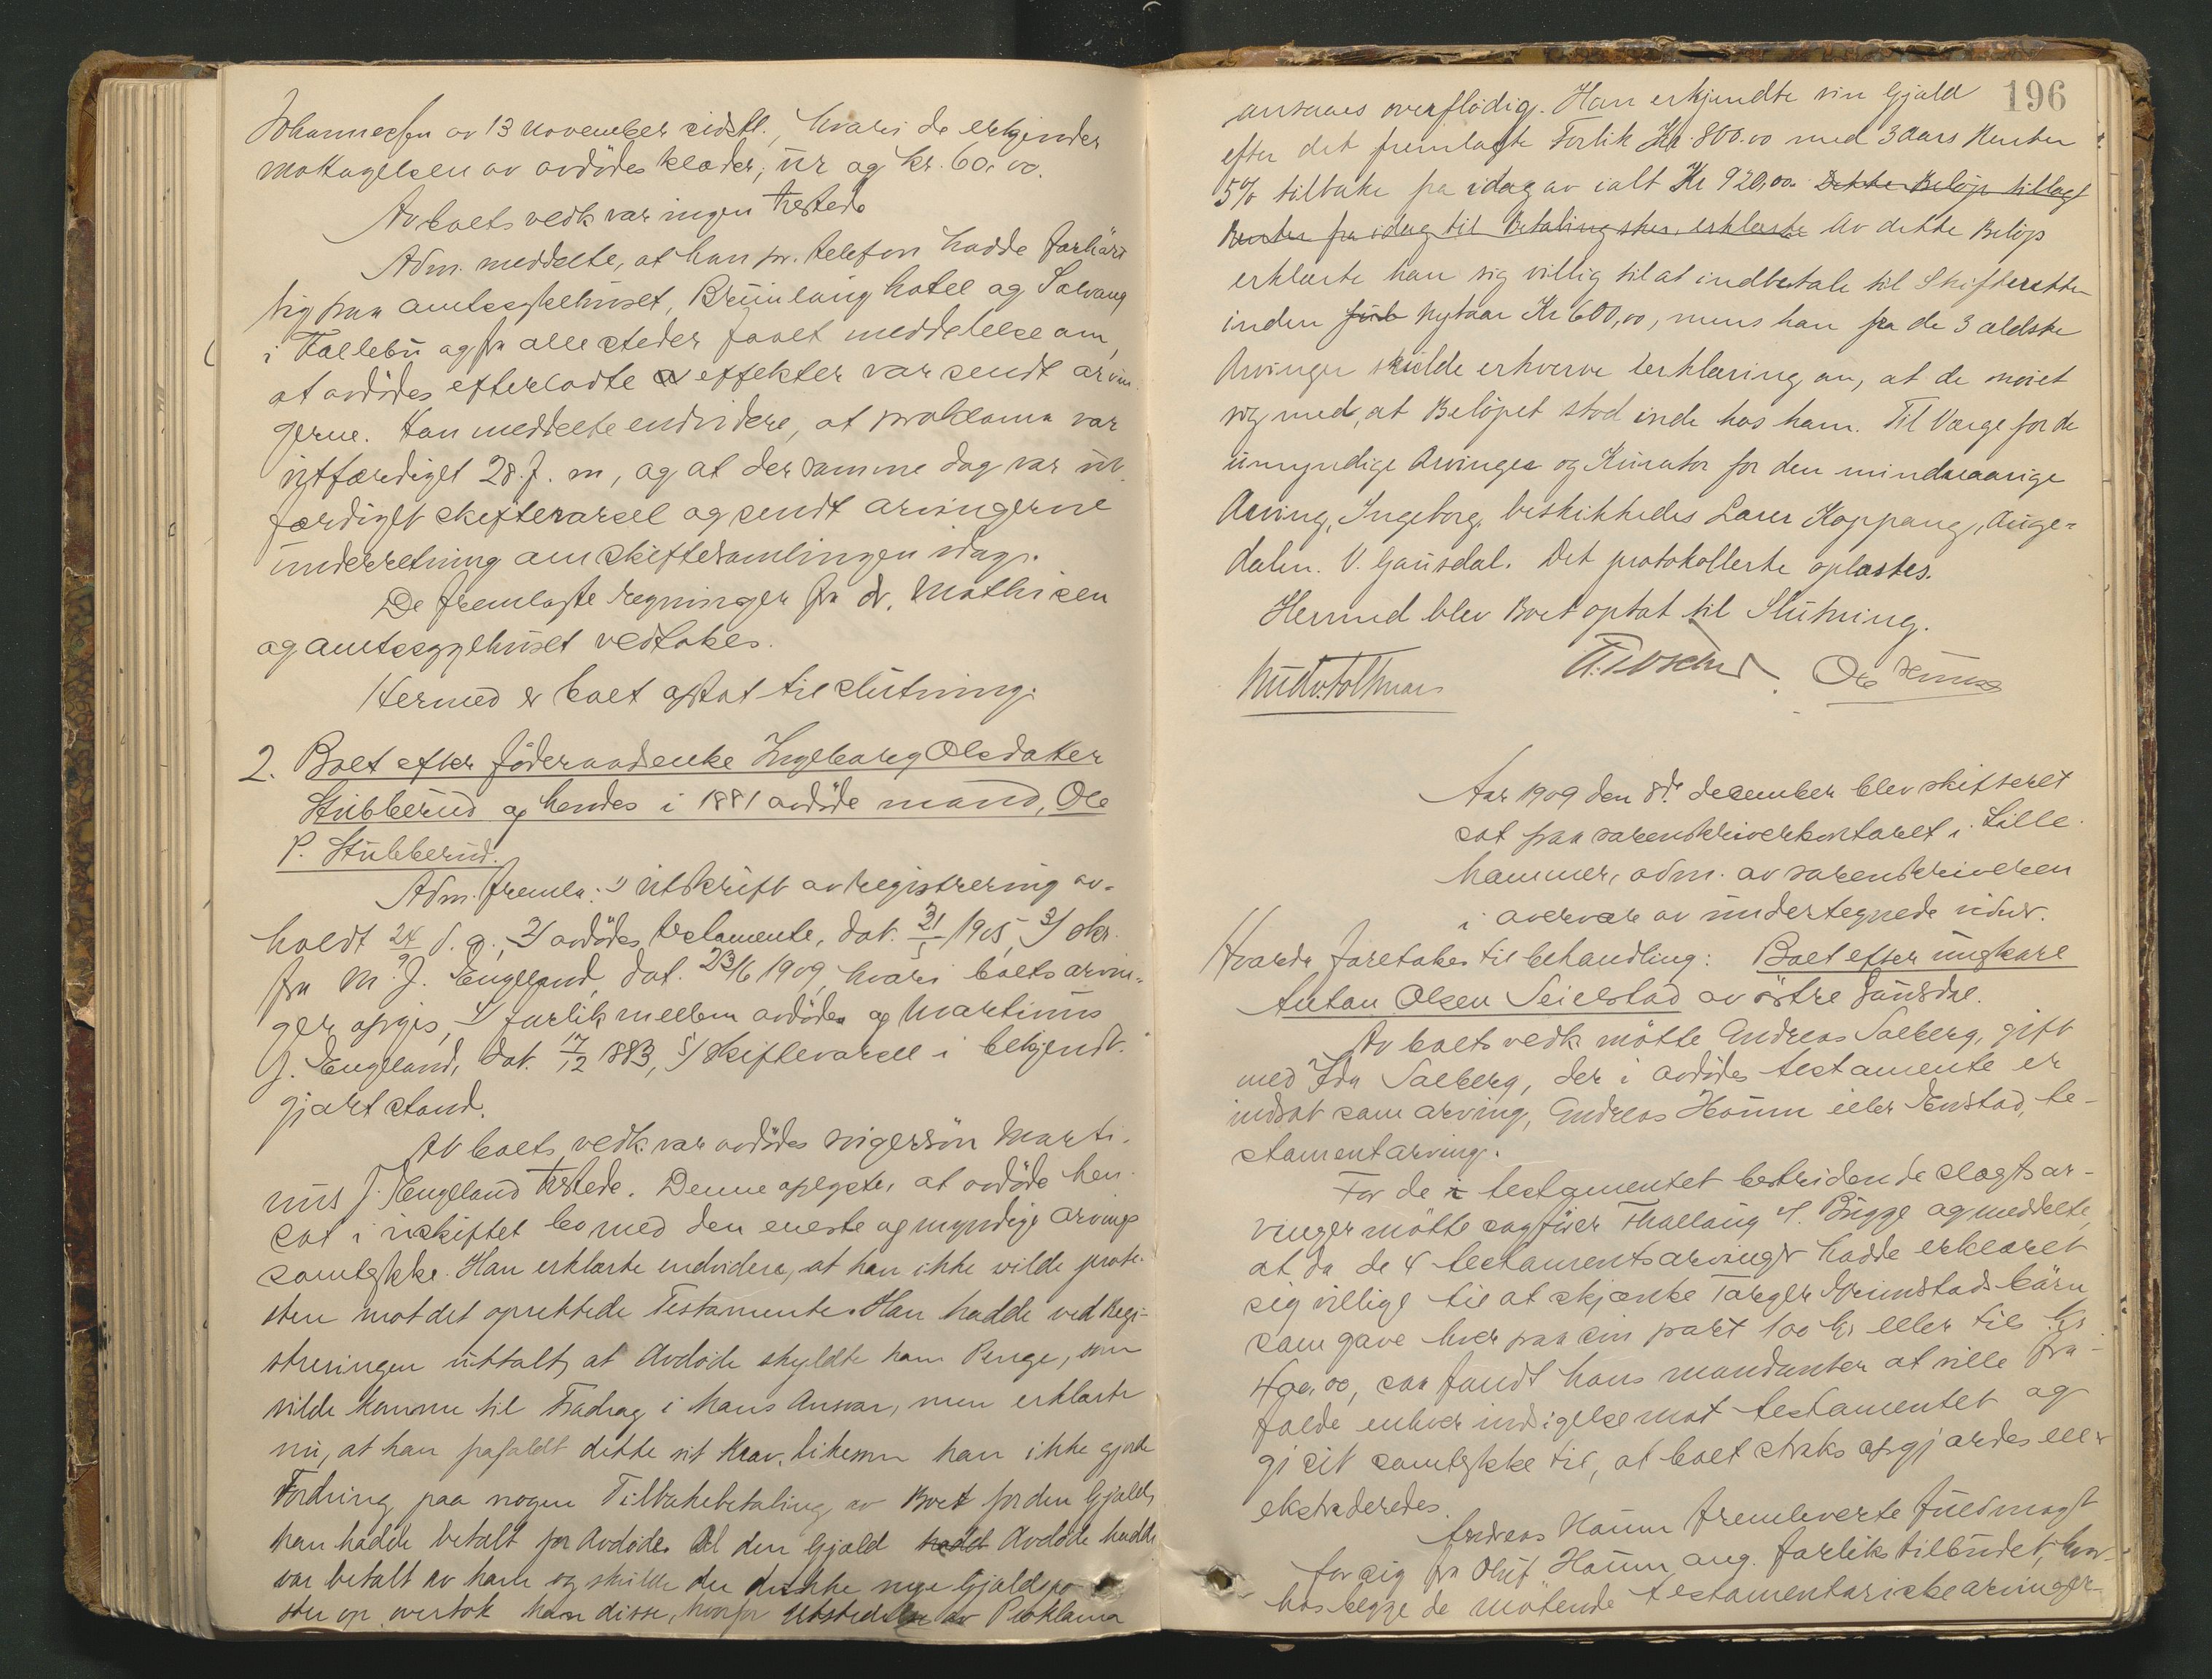 Johannessen av 13 november sidstl., hvori de erkjender
mottagelsen av avdödes klæder, ur og kr. 60.00.
Av boets vedk var ingen tilstede
Adm. meddelte, at han pr. telefon hadde forhört
sig paa amtssykehuset, Bruunlaug hotel og Solvang
i Follebu og fra alle steder faaet meddelelse om,
at avdödes efterladte effekter var sendt arvin-
gerne. Han meddelte endvidere, at proklama var
utfærdiget 28. f. m, og at der samme dag var ut-
færdiget skiftevarsel og sendt arvingerne
underretning om skiftesamlingen idag.
De fremlagte regninger fra dr. Mathisen
og amtssygehuset vedtokes.
Hermed er boet optat til slutning.
2. Boet efter föderaadsenke Ingeborg Olsdatter
Stubberud og hendes i 1881 avdöde mand, Ole
P. Stubberud.
Adm. fremla: 1) utskrift av registrering av-
holdt 24/9 d. a., 2) avdödes testamente, dat. 31/5 1905, 3) skr.
fra M. J. Engeland, dat. 23/6 1909, hvori boets arvin-
ger opgis, 4) forlik mellem avdöde og Martinus
J. Engeland, dat. 17/12 1883, 5) skiftevarsel i bekjendt-
gjort stand.
Av boets vedk. var avdödes svigersön Marti-
nus J. Engeland tilstede. Denne oplyste, at avdöde hen-
sat i uskiftet bo med den eneste og myndige arvings
samtykke. Han erklærte endvidere, at han ikke vilde prote-
stere mot det oprettede Testamente. Han hadde ved Regi-
streringen uttalt, at Avdöde skyldte ham Penge, som
vilde komme til Fradrag i hans Ansvar, men erklærte
nu, at han frafaldt dette sit Krav, likesom han ikke gjorde
Fordring paa nogen Tilbakebetaling av Boet for den Gjæld,
han hadde betalt for Avdöde. Al den Gjæld hadde Avdöde hadde
var betalt av ham og skulde der dukke nye Gjældspo-
ster op overtok han disse, hvorfor Utstedelse av Proklama
196
ansaaes overflödig. Han erkjendte sin Gjæld
efter det fremlagte Forlik Kr. 800.00 med 3 Aars Renter
5% tilbake fra idag av ialt Kr 920,00. Dette Belöp tillagt
Renter fra idag til Betaling sker, erklærte Av dette Belöp
erklærte han sig villig til at indbetale til Skifteretten
inden Nytaar Kr 600,00, mens han fra de 3 ældste
Arvinger skulde erhverve Erklæring om, at de nöiet
sig med, at Belöpet stod inde hos ham. Til Værge for de
umyndige Arvinger og Kurator for den mindreaarige
Arving, Ingeborg, beskikkedes Lærer Koppang, Auge-
dalen. V. Gausdal. Det protokollerte oplæstes.
Hermed blev Boet optat til Slutning.
Aar 1909 den 8de december blev skifteret
sat paa sorenskriverkontoret i Lille-
hammer, adm. av sorenskriveren
i overvær av undertegnede vidner.
Hvorda foretokes til behandling: Boet efter ungkarl
Anton Olsen Seielstad av östre Gausdal.
Av boets vedk mötte Andreas Solberg, gift
med Ida Solberg, der i avdödes testamente er
indsat som arving, Andreas Haum eller Enstad, te-
stamentarving.
For de testamentet bestridende slegtsar-
vinger mötte sagförer Thallaug v. Bugge og meddelte,
at da de 4 testamentsarvinger hadde erklæret
sig villige til at skjænke Torger Grimstads börn
som gave hver paa sin part 100 kr eller tils. kr.
400,00, saa fandt hans mandanter at ville fra-
falde enhver indsigelse mot testamentet og
gi sit samtykke til, at boet straks opgjordes ell
ekstraderedes.
Andreas Haum fremleverte fuldmagt
for sig fra Oluf Haum ang. forlikstilbudet, hvor-
hos begge de mötende testamentariske arvinger